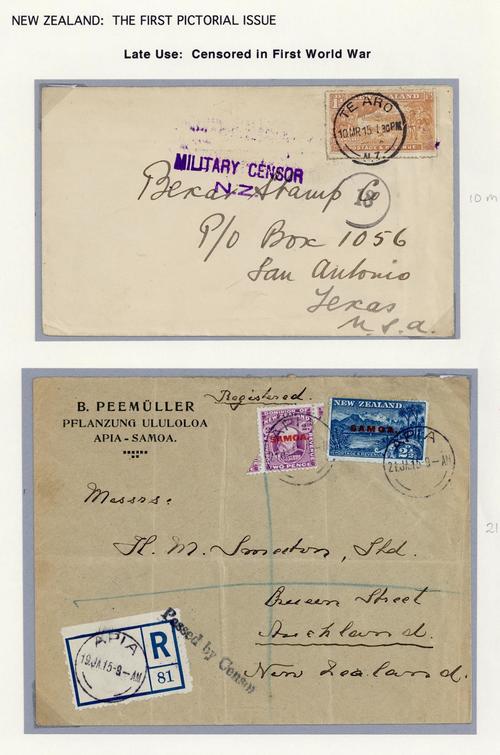 NEW ZEALAND: THE FIRST PICTORIAL ISSUE
Late Use: Censored in First World War
TE ARO
10 MR 15 1.30PM
N.Z.
POSTAGE & REVENUE
MILITARY CENSOR
N.Z.
18
Bexar Stamp Co
P/O Box 1056
San Antonio
Texas
U.S.A.
10 m
B. PEEMÜLLER
PFLANZUNG ULULOLOA
APIA - SAMOA.
Registered.
DOMINION OF
NEW ZEALAND
SAMOA.
TWO PENCE
NEW ZEALAND
SAMOA.
POSTAGE & REVENUE
2½
APIA
21.JA.15-9-AM
Messrs:
H. M. Smeaton, Ltd.
Queen Street
Auckland.
New Zealand.
21
Passed by Censor
APIA
19.JA.15-9-AM
R
81